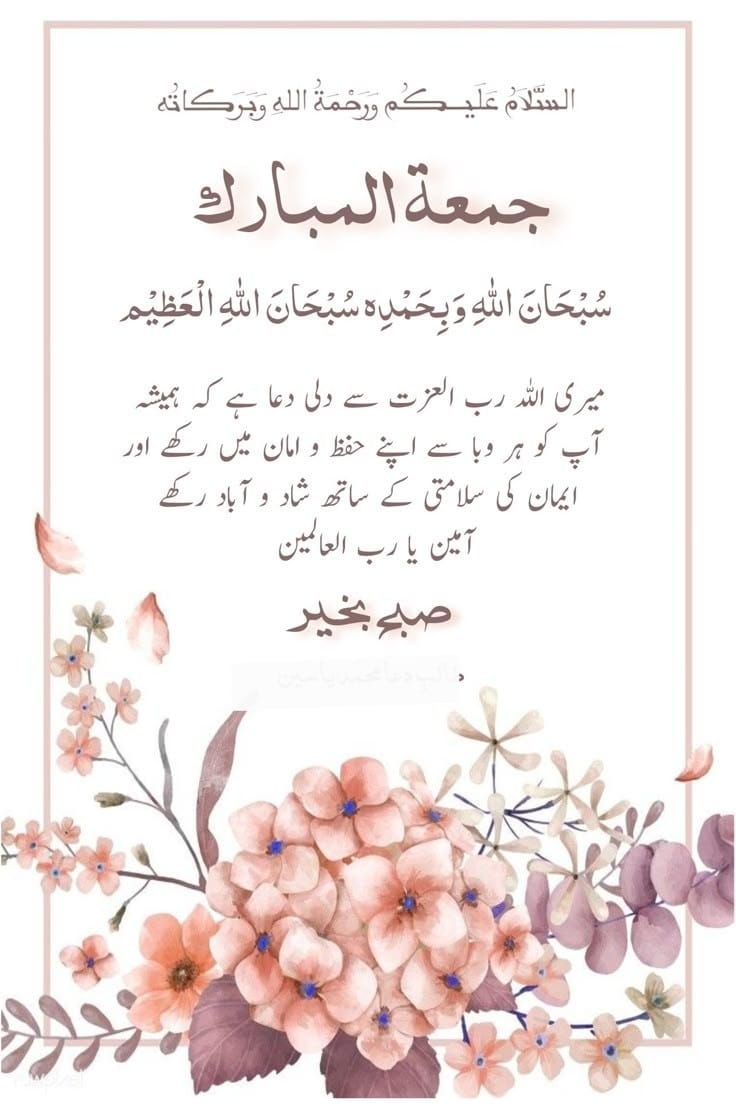 السَّلَامُ عَلَيْكُم وَرَحْمَةُ اللهِ وَبَرَكَاتُه
جمعة المبارك
سُبْحَانَ اللهِ وَبِحَمْدِه سُبْحَانَ اللهِ الْعَظِيْم
میری اللہ رب العزت سے دلی دعا ہے کہ ہمیشہ
آپ کو ہر وبا سے اپنے حفظ و امان میں رکھے اور
ایمان کی سلامتی کے ساتھ شاد و آباد رکھے
آمین یا رب العالمین
صبح بخیر
طالب دعا محمد یاسین